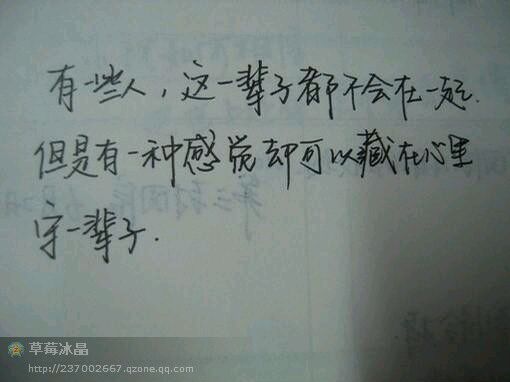 有一些人，这一辈子都不会在一起.
但是有一种感觉却可以藏在心里
守一辈子.
草莓冰晶
http://237002667.qzone.qq.com